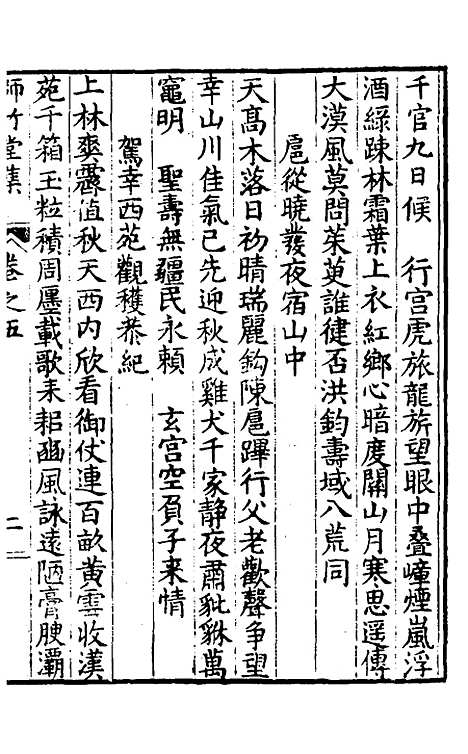 千官九日候　行宫虎旅龍旂望眼中叠嶂煙嵐浮
酒緑踈林霜葉上衣紅鄉心暗度關山月寒思遥傳
大漠風莫問茱萸誰健否洪鈞壽域八荒同
扈從曉發夜宿山中
天髙木落日初晴瑞麗鈎陳扈蹕行父老歡聲争望
幸山川佳氣已先迎秋成雞犬千家静夜肅貔貅萬
竈明　聖壽無疆民永頼　玄宫空負子来情
駕幸西苑觀穫恭紀
上林爽靄值秋天西内欣看御仗連百畝黄雲收漢
苑千箱玉粒積周廛載歌耒耜豳風詠遠陋膏腴灞
師竹堂集　卷之五　二